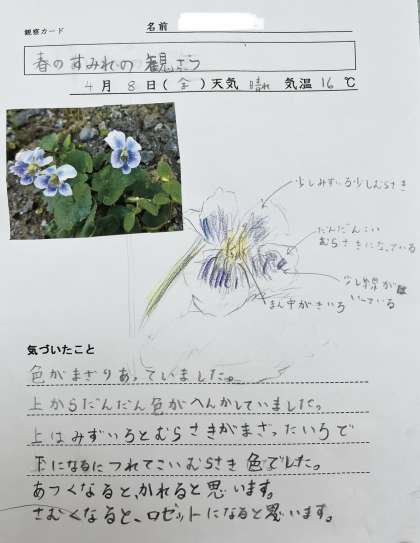 観察カード
名前
春のすみれの観さつ
4月8日(金)天気 晴れ 気温16℃
少しみずいろ少しむらさき
だんだんこい
むらさきになっている
少し線が
いっている
まん中がきいろ
気づいたこと
色がまざりあっていました。
上からだんだん色がへんかしていました。
上はみずいろとむらさきがまざったいろで
下になるにつれてこいむらさき色でした。
あつくなると、かれると思います。
さむくなると、ロゼットになると思います。